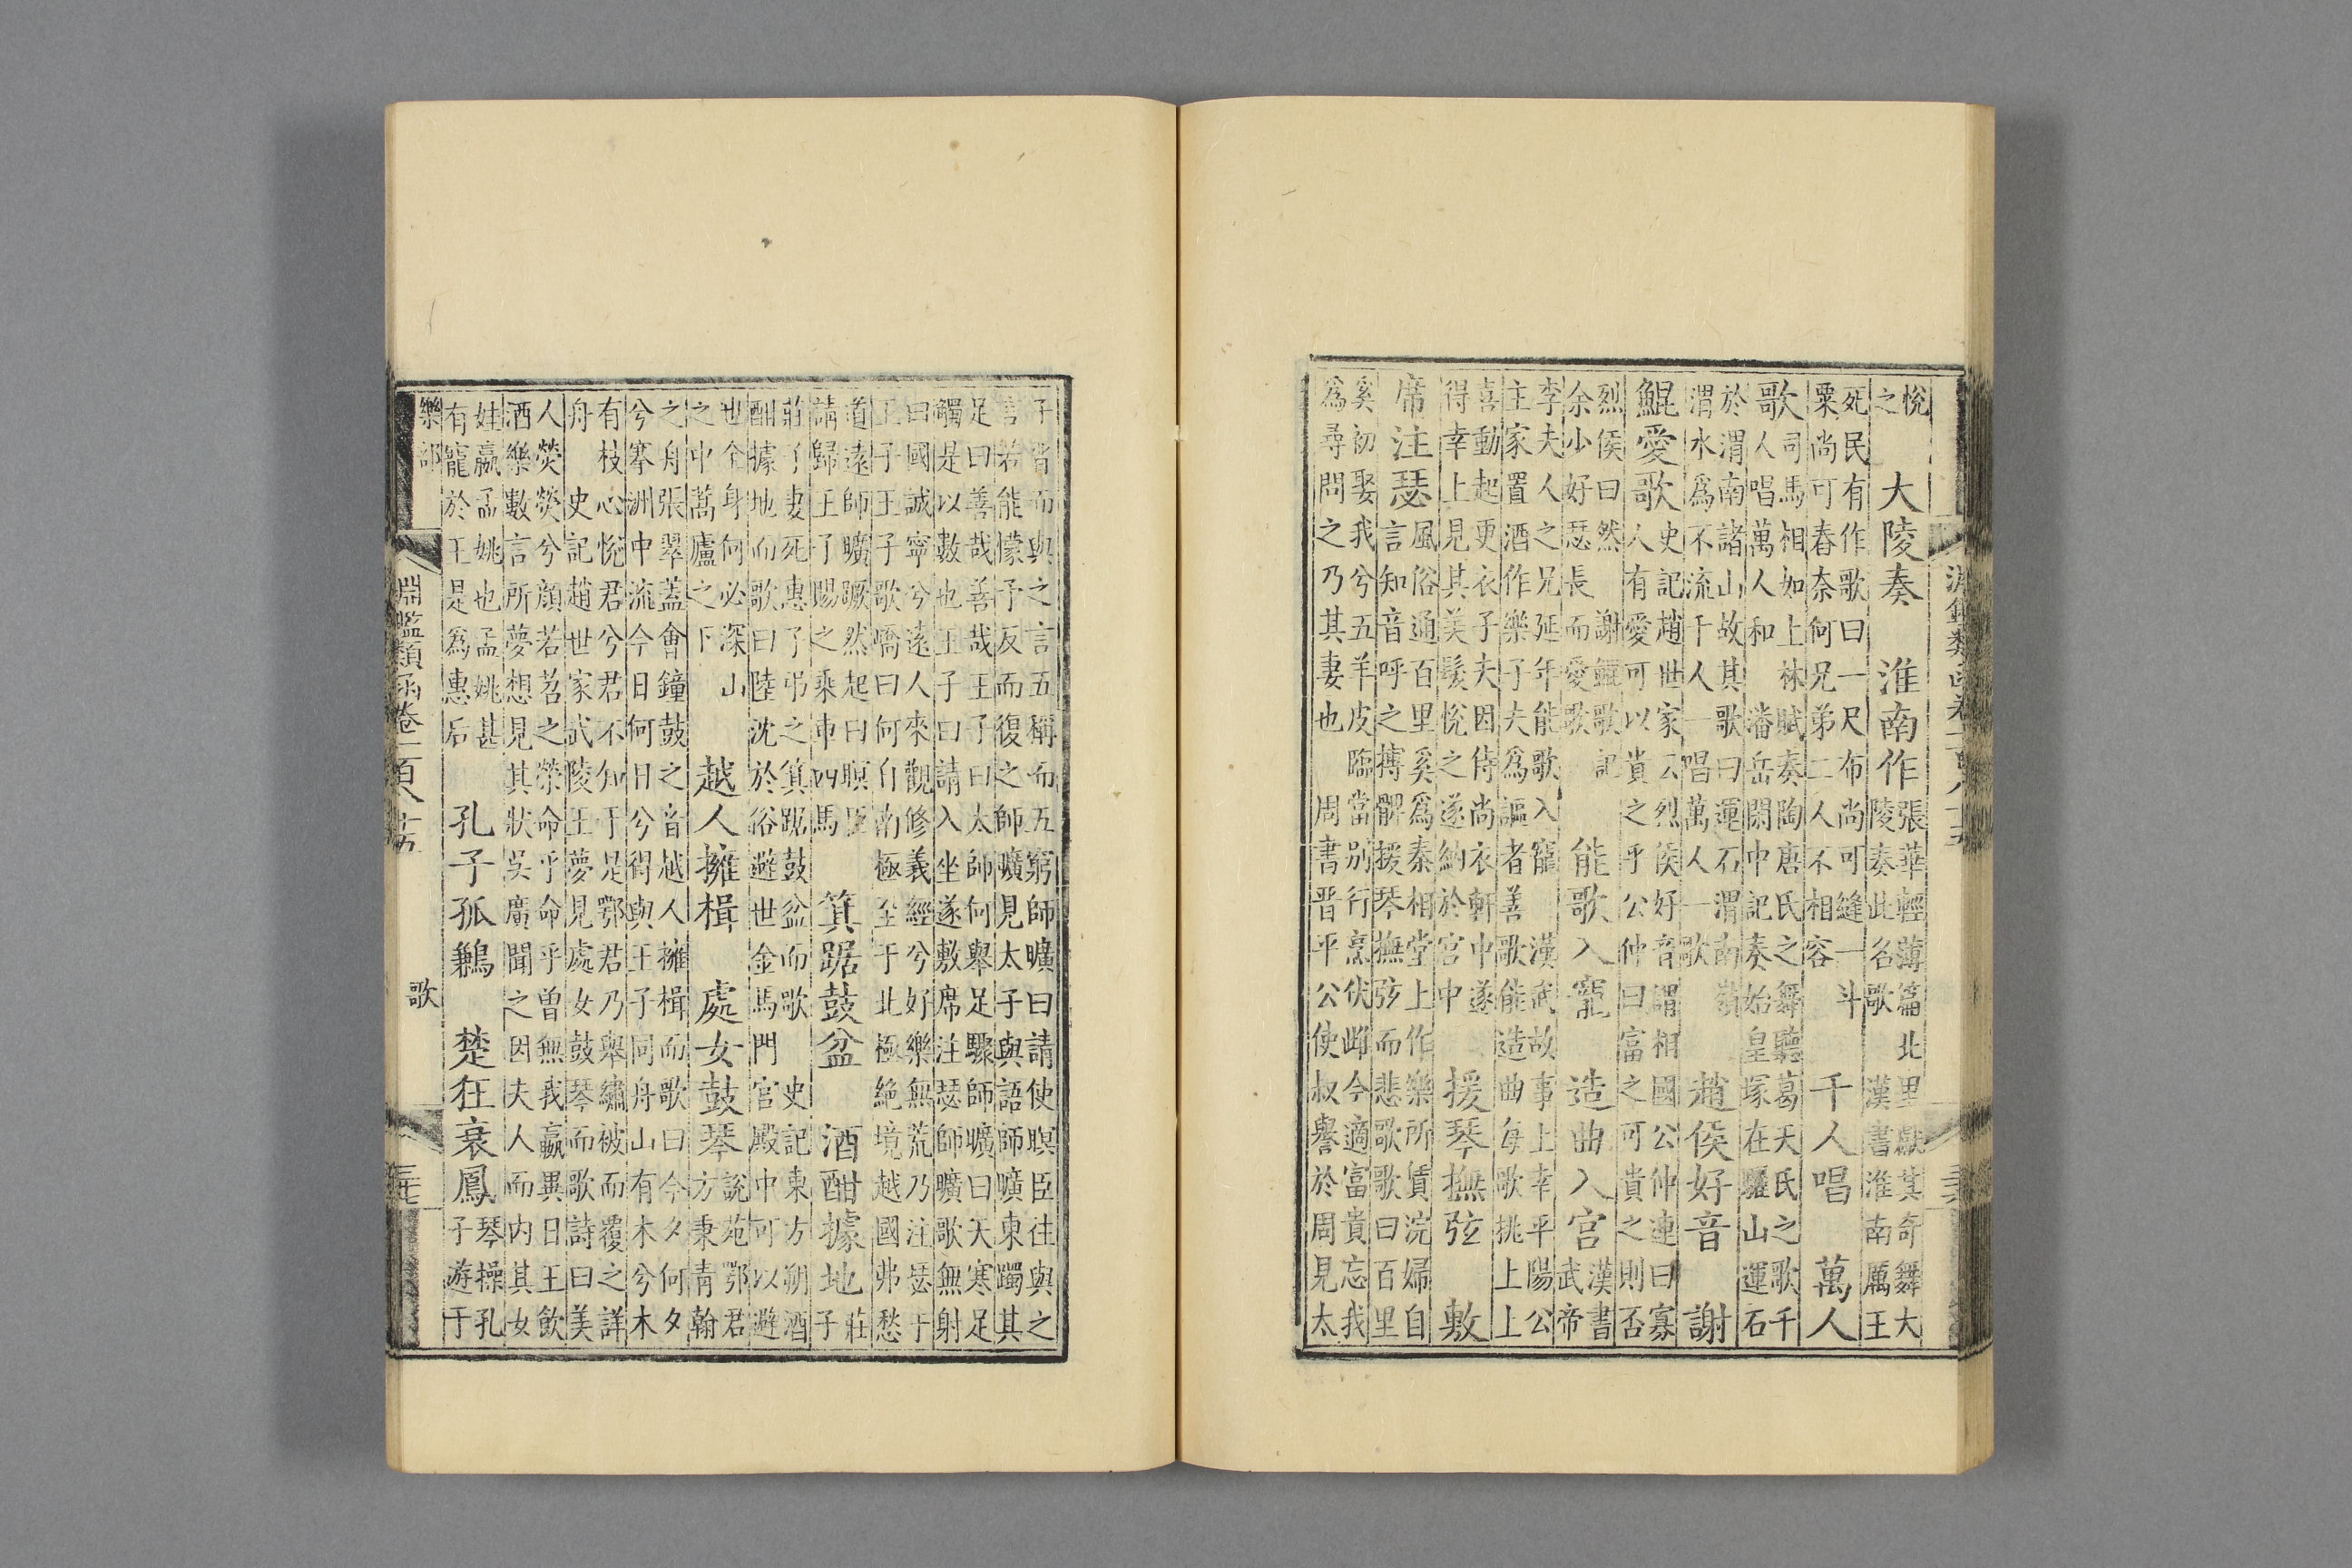 淵鑑類函卷一百八十五
悅
之
大陵奏　淮南作
張華輕薄篇北里獻其奇舞大
陵奏此名歌　漢書淮南厲王
死民有作歌曰一尺布尚可縫一斗
粟尚可舂奈何兄弟二人不相容
千人唱　萬人
歌
司馬相如上林賦奏陶唐氏之舞聽葛天氏之歌千
人唱萬人和　潘岳關中記奏始皇塚在驪山運石
於渭南諸山故其歌曰運石渭南嶺
渭水爲不流千人一唱萬人一歌
趙侯好音　謝
鯤愛歌
史記趙世家云烈侯好音謂相國公仲連曰寡
人有愛可以貴之乎公仲曰富之可貴之則否
烈侯曰然　謝鯤歌記
余少好瑟長而愛歌
能歌入寵　造曲入宮
漢書
武帝
李夫人之兄延年能歌入寵　漢武故事上幸平陽公
主家置酒作樂子夫爲謳者善歌能造曲每歌挑上上
喜動起更衣子夫因侍尚衣軒中遂
得幸上見其美髮悅之遂納於宮中
援琴撫弦　敷
席注瑟
風俗通百里奚爲秦相堂上作樂所賃浣婦自
言知音呼之搏髀援琴撫弦而悲歌歌曰百里
奚初娶我兮五羊皮臨當別行烹伏雌今適富貴忘我
爲尋問之乃其妻也　周書晉平公使叔譽於周見太
子晉而與之言五稱而五窮師曠曰請使瞑臣往與之
言若能懞予反而復之師曠見太子與語師曠東躅其
足曰善哉善哉王子曰太師何舉足驟師曠曰天寒足
躅是以數也王子曰請入坐遂敷席注瑟師曠歌無射
曰國誠寧兮遠人來觀修義經兮好樂無荒乃注瑟于
王子王子歌嶠曰何自南極至于北極絶境越國弗愁
道遠師曠蹶然起曰瞑臣
請歸王子賜之乘車四馬
箕踞鼓盆　酒酣據地
莊
子
莊子妻死惠子弔之箕踞鼓盆而歌　史記東方朔酒
酣據地而歌曰陸沈於俗避世金馬門宮殿中可以避
世全身何必深山
之中蒿廬之下
越人擁楫　處女鼓琴
說苑鄂君
方秉青翰
之舟張翠蓋會鐘鼓之音越人擁楫而歌曰今夕何夕
兮搴洲中流今日何日兮得與王子同舟山有木兮木
有枝心悅君兮君不知于是鄂君乃舉繡被而覆之詳
舟　史記趙世家武陵王夢見處女鼓琴而歌詩曰美
人熒熒兮顏若苕之榮命乎命乎曾無我嬴異日王飲
酒樂數言所夢想見其狀吳廣聞之因夫人而内其女
娃嬴孟姚也孟姚甚
有寵於王是爲惠后
孔子孤鶼　楚狂衰鳳
琴操孔
子遊于
樂部　歌
淵鑑類函卷一百八十五　三十七